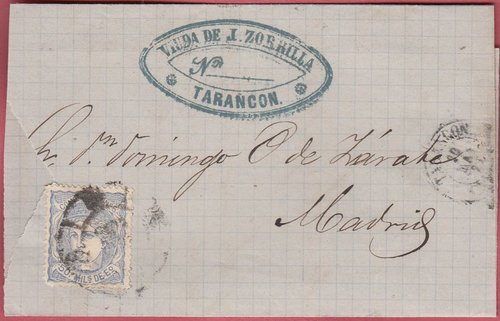 VIUDA DE J. ZORRILLA
Nº
TARANCON.
Sr. Dn. Domingo O de Zárate
Madrid
50. MILS DE E.
TARANCON